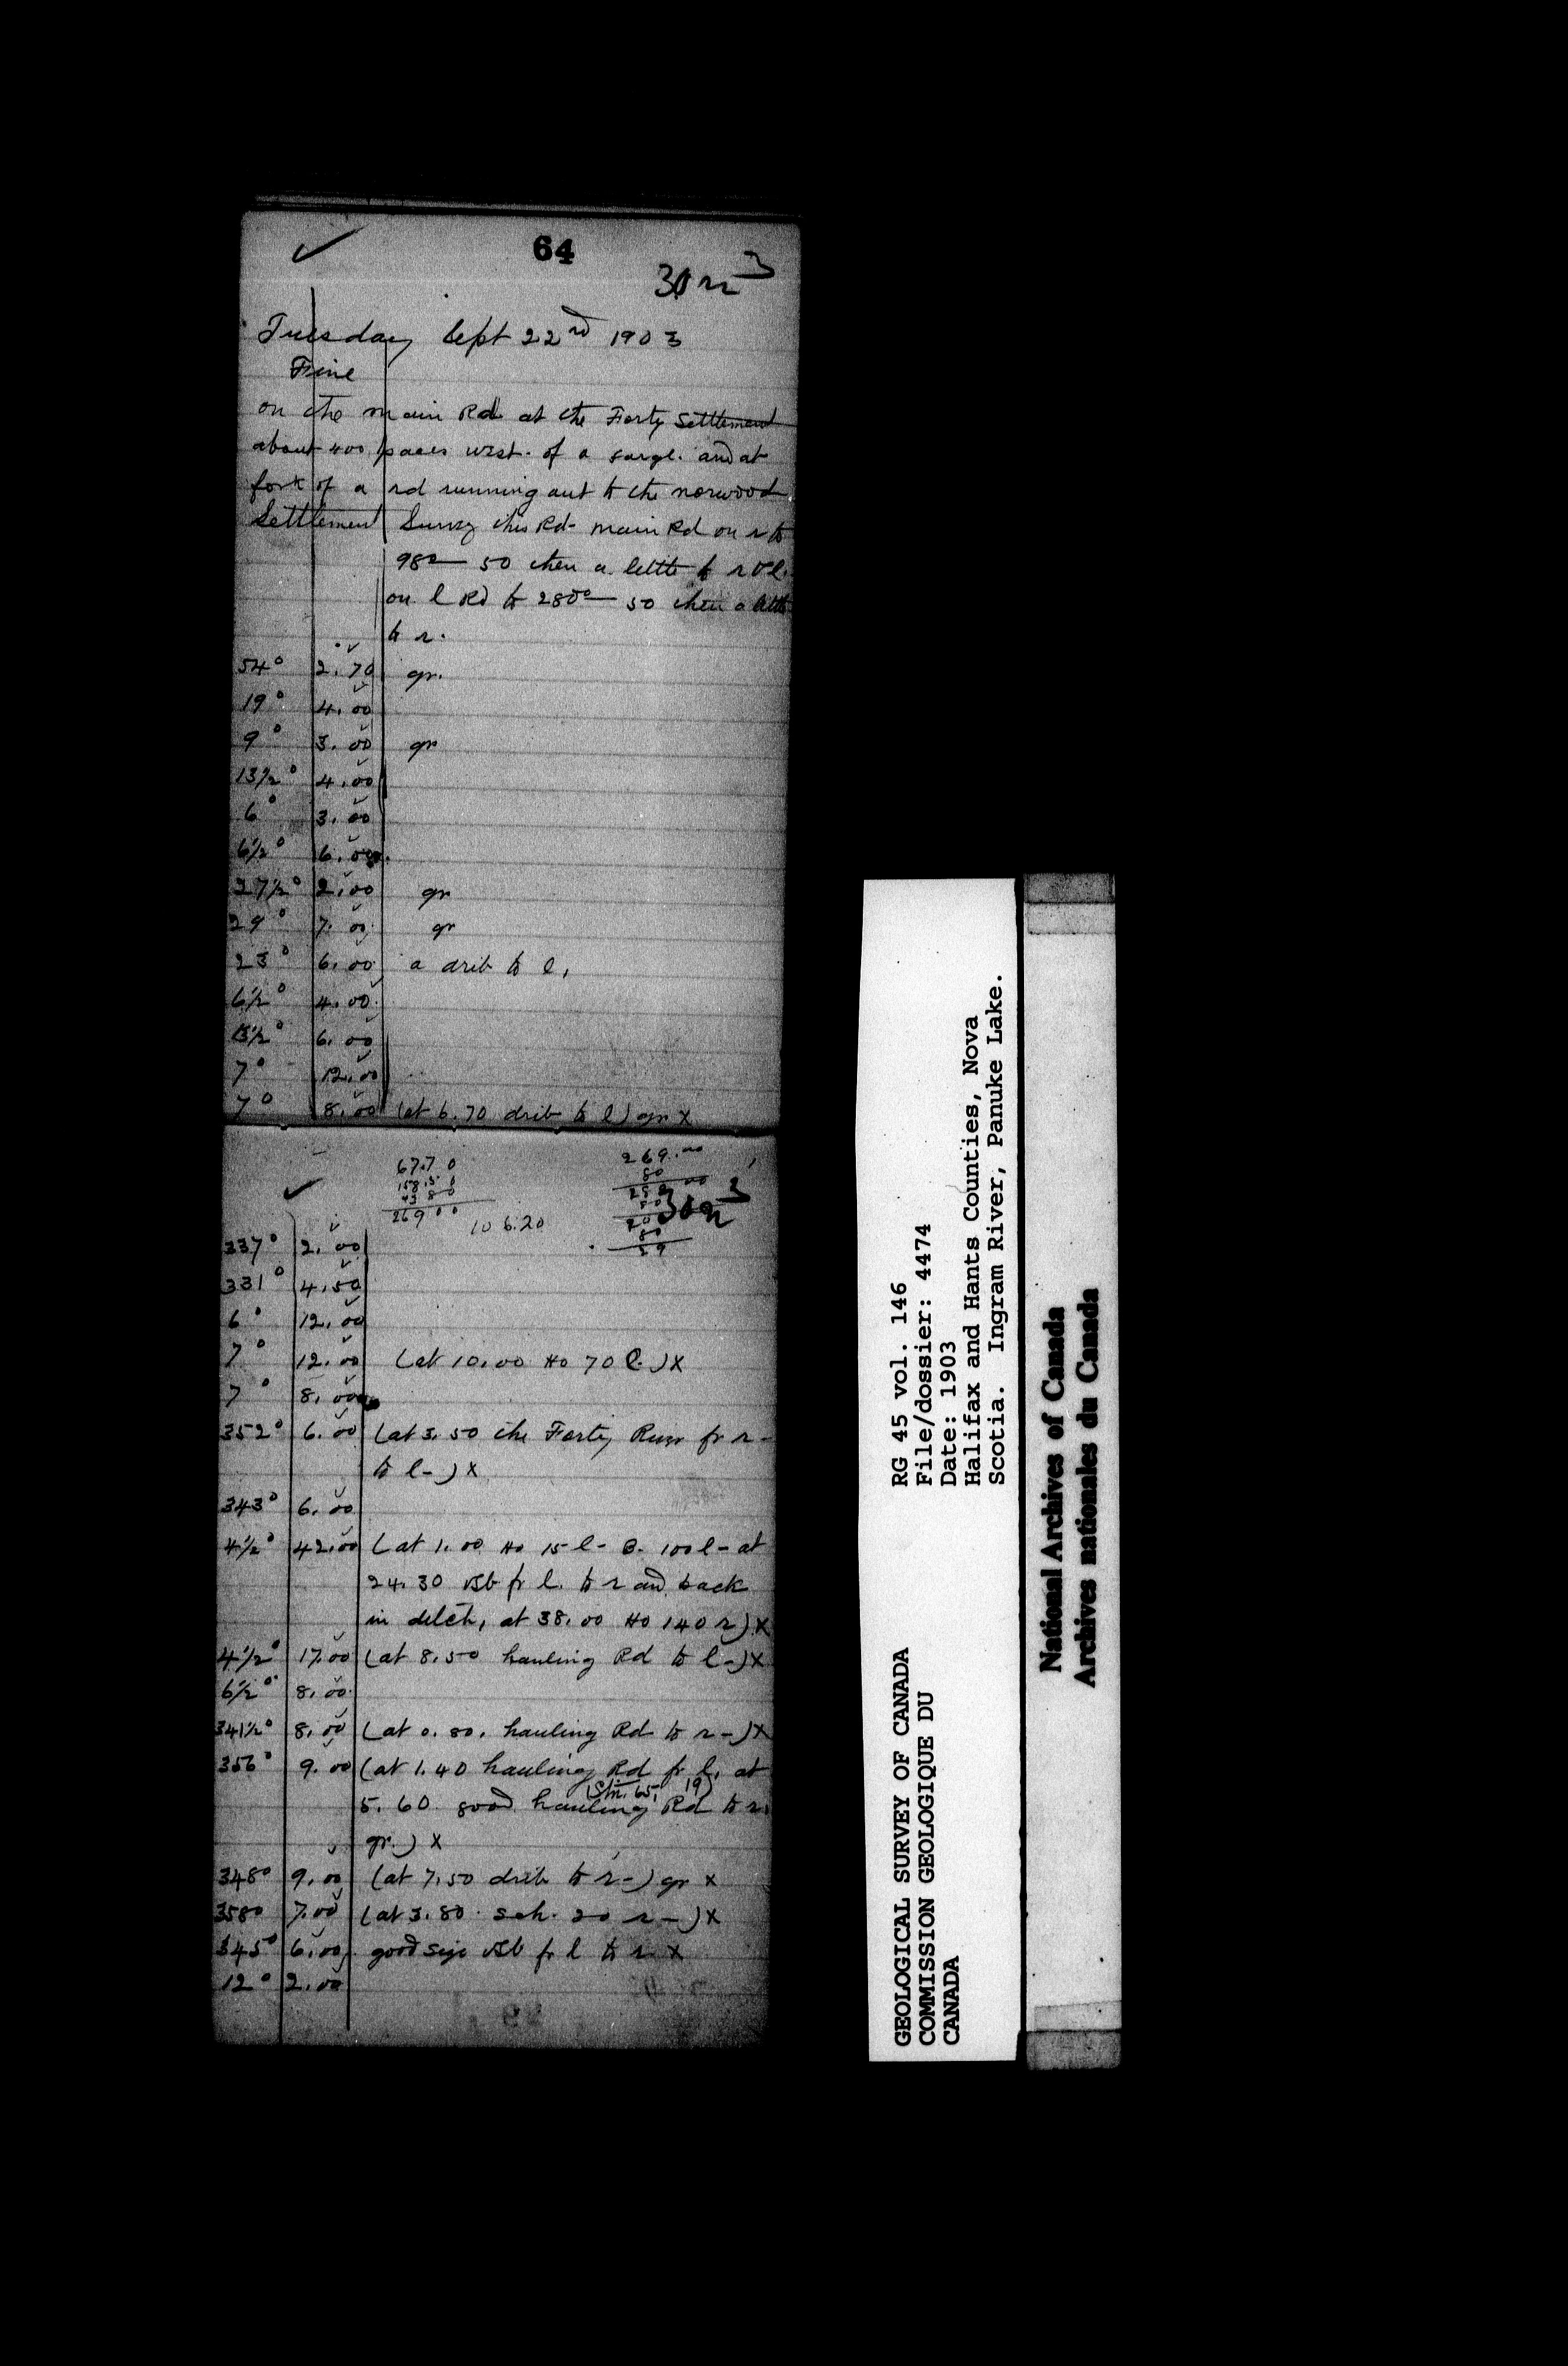 64
Tuesday Sept 22nd 1903
Fine
on the main Rd at the Forty Settlement
about 400 paces west. of a and at
fork of a rd running out to the norwood
Settlement Survey this Rd- main Rd on r to
98° 50 then a little to r & l.
on l Rd to 280° 50 then a little
to r.
54° 2.70 gr.
19° 4.00
9° 3.00 gr
13½° 4.00
6° 3.00
6½° 6.00
27½° 2.00 gr
29° 7.00 gr
23° 6.00 a drib to l,
6½° 4.00
13½° 6.00
7° 12.00
7° 8.00 (at 6.70 drib to l) gr x
67.70 269.00
158.50 80
43 80
269 00
106.20
80
59
337° 2.00
331° 4.50
6° 12.00
7° 12.00 (at 10.00 Ho 70 l-) x
7° 8.00
352° 6.00 (at 3.50 the Forty River fr r-
to l-) x
343° 6.00
4½° 42.00 (at 1.00 Ho 15 l- B. 100 l- at
24.30 vsb fr l. to r and back
in ditch, at 38.00 Ho 140 r) x
4½° 17.00 (at 8.50 hauling Rd to l-) x
6½° 8.00
341½° 8.00 (at 0.80. hauling Rd to r-) x
356° 9.00 (at 1.40 hauling Rd fr l, at
(Stn. 65, 19)
5.60 good hauling Rd to r.
gr.) x
348° 9.00 (at 7.50 drib to r-) gr x
358° 7.00 (at 3.80 sch. 20 r-) x
345° 6.00 good size vsb fr l to r x
12° 2.00
RG 45 vol. 146
File/dossier: 4474
Date: 1903
Halifax and Hants Counties, Nova
Scotia. Ingram River, Panuke Lake.
GEOLOGICAL SURVEY OF CANADA
COMMISSION GEOLOGIQUE DU
CANADA
National Archives of Canada
Archives nationales du Canada